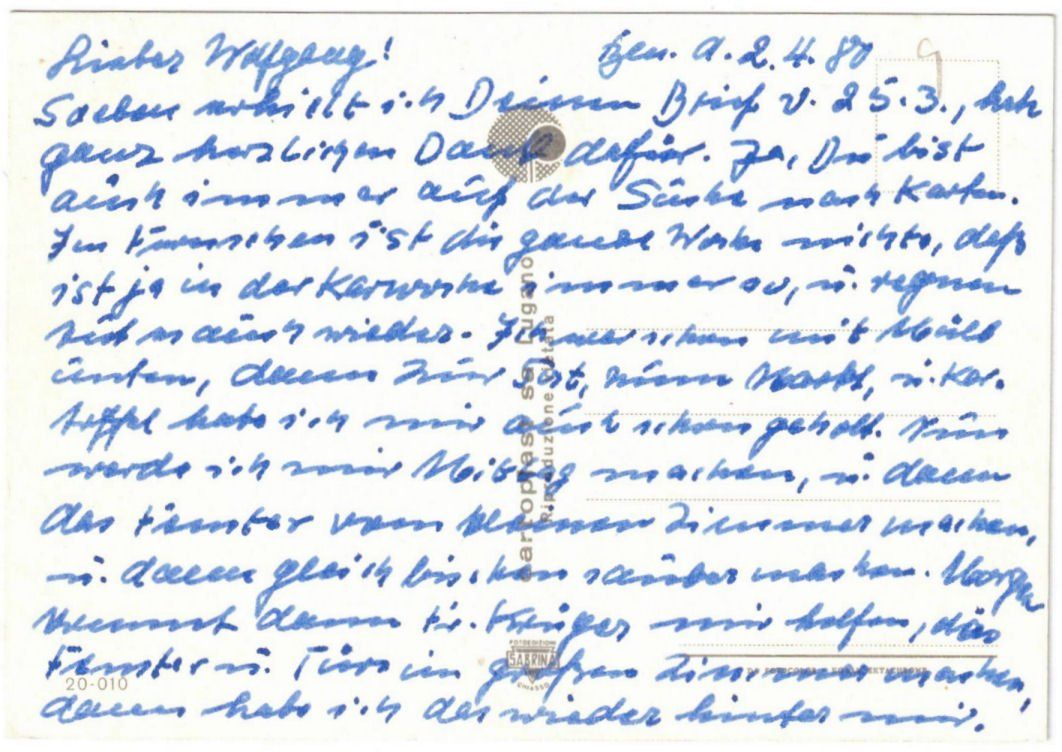 Lieber Wolfgang! Ben. d. 2. 4. 80
Soeben erhielt ich Deinen Brief v. 25.3., hab
ganz herzlichen Dank dafür. Ja, Du bist
auch immer auf der Suche nach Karten.
Im Fernsehen ist die ganze Woche nichts, daß
ist ja in der Karwoche immer so, u. regnen
tut es auch wieder. Ich war schon mit Müll
unten, dann zur Post, zum Markt, u. Kar-
toffel habe ich mir auch schon geholt. Nun
werde ich mir Mittag machen, u. dann
das Fenster vom kleinen Zimmer machen,
u. dann gleich bischen sauber machen. Morgen
kommt dann Fr. Krüger mir helfen, das
Fenster u. Türe im großen Zimmer machen,
dann habe ich das wieder hinter mir.
cartoprast sa Lugano
Riproduzione vietata
FOTOEDIZIONI
SABRINA
CHIASSO
20-010